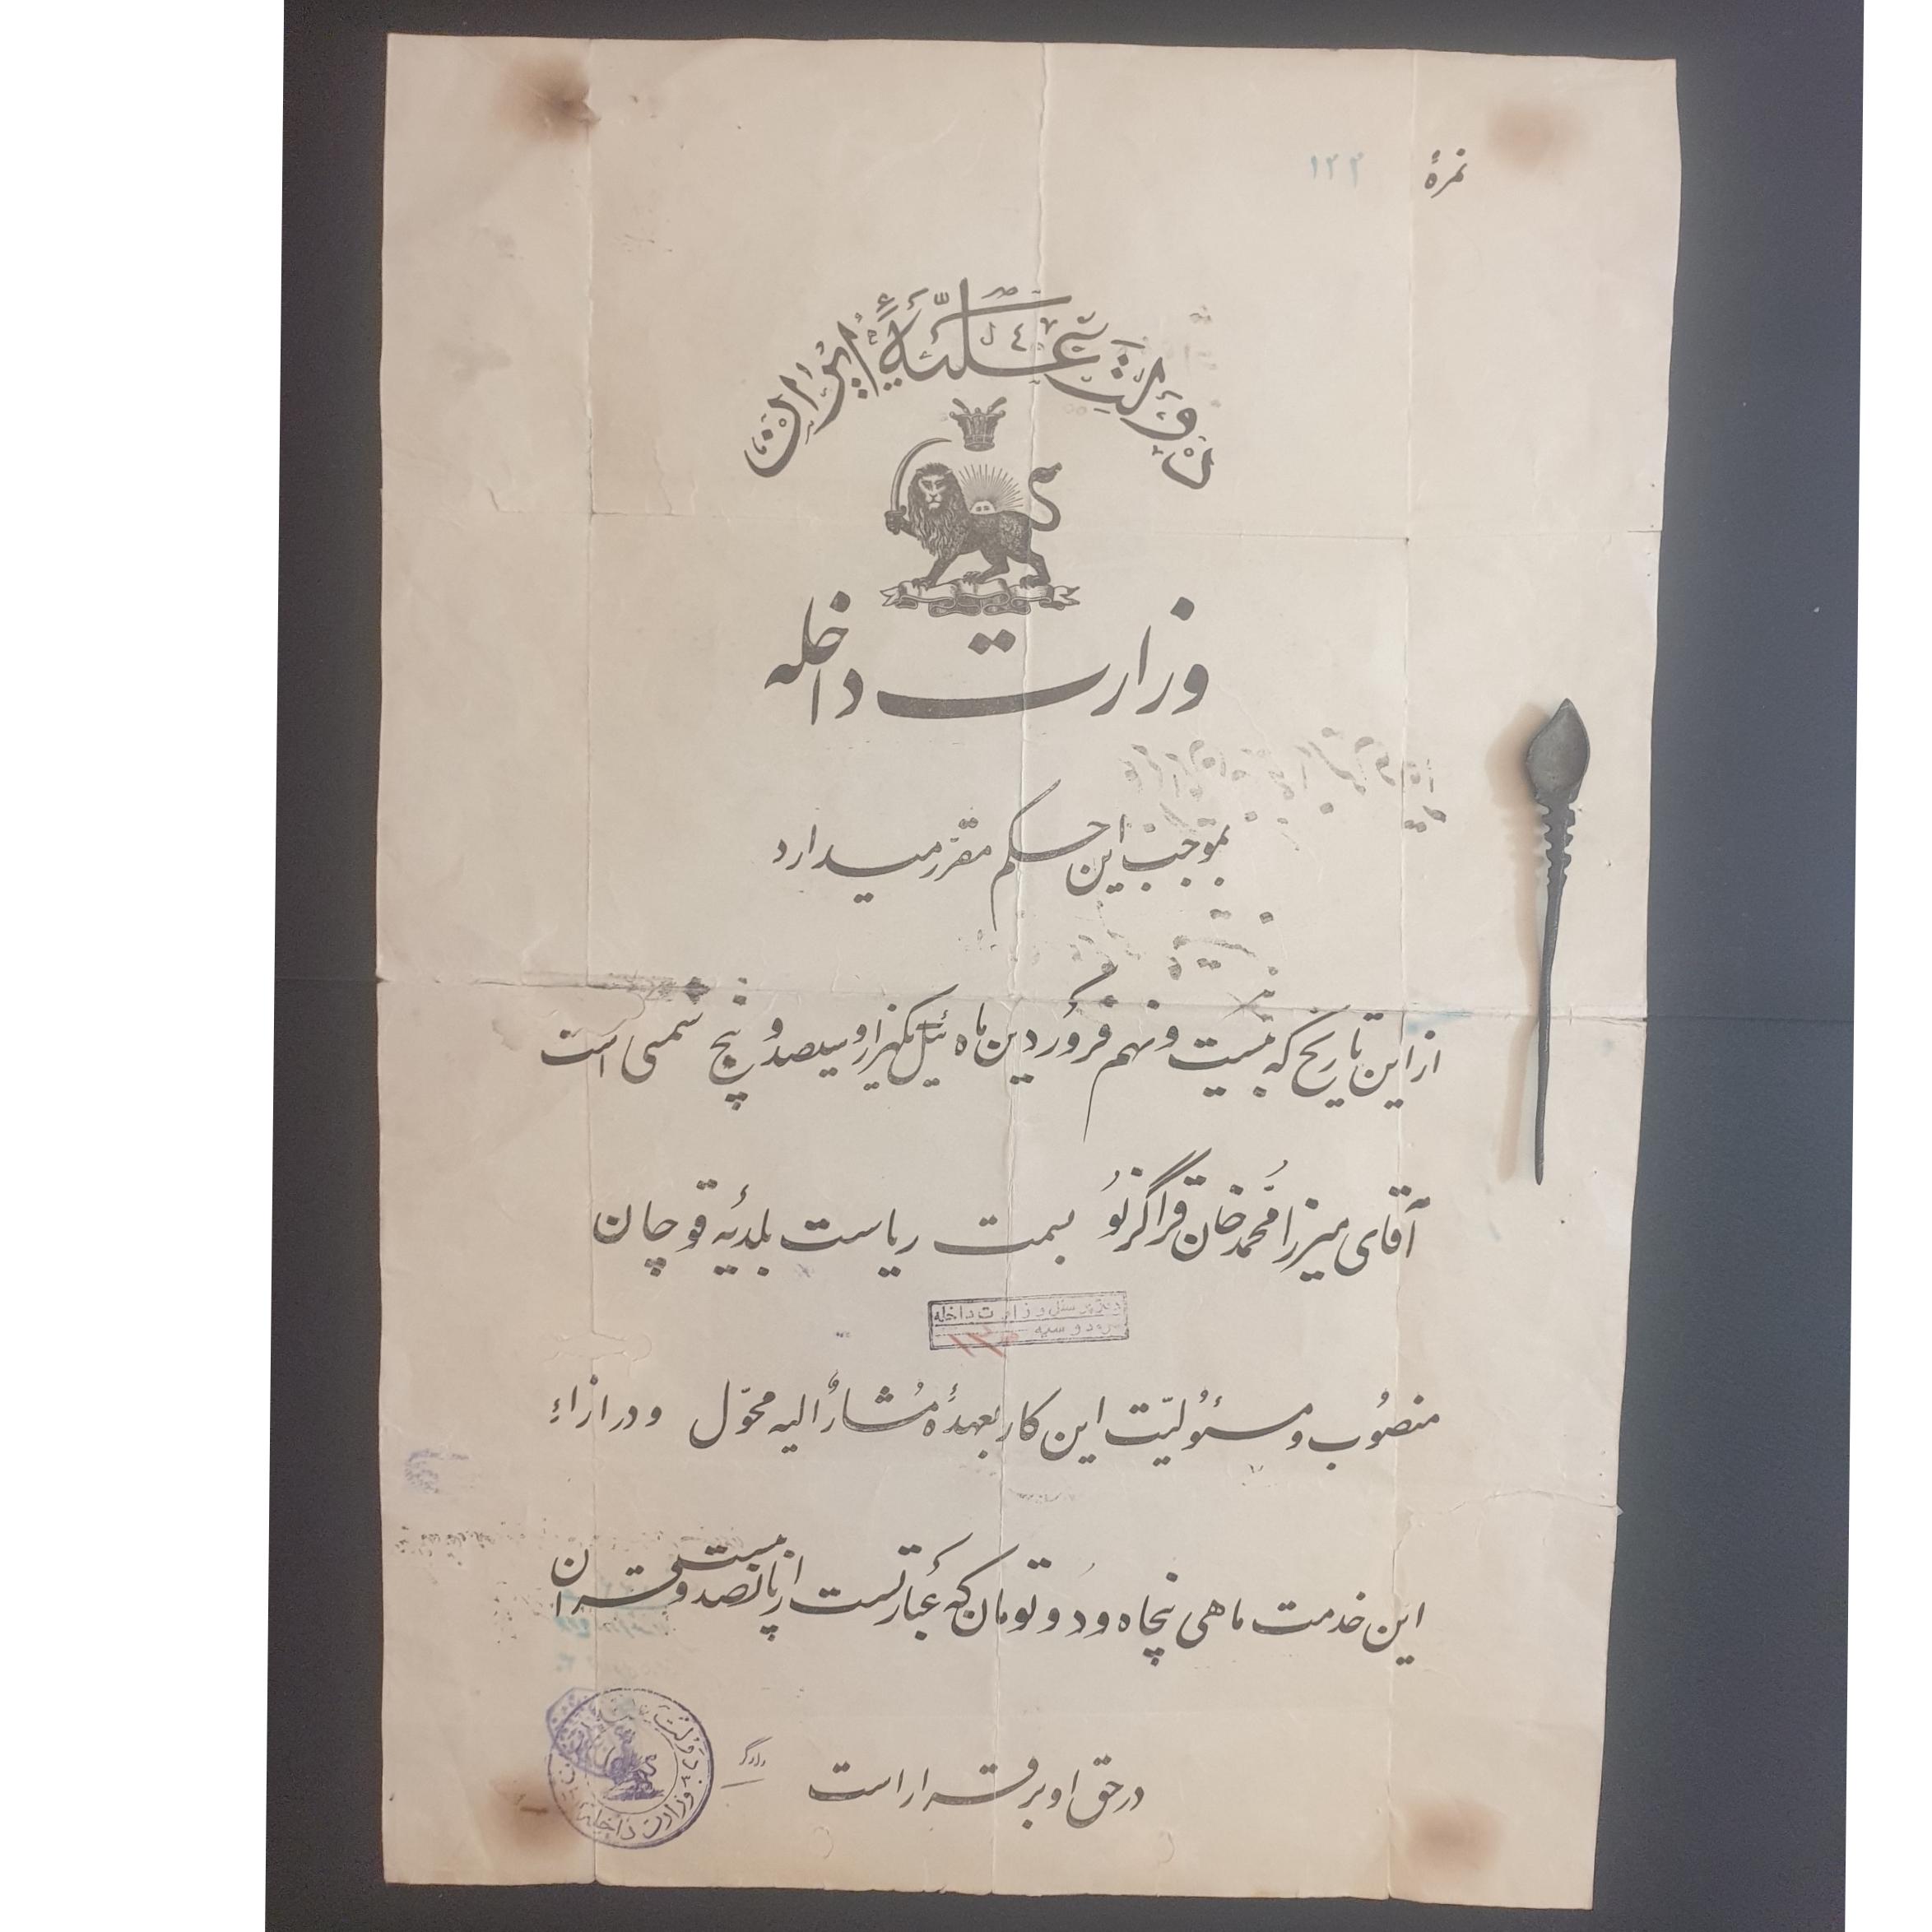 نمرهٔ ۱۲۲
دولت علیّهٔ ایران
وزارت داخله
بموجب این حکم مقرّر میدارد
از این تاریخ که بیست و نهم فروردین ماه ئیل یکهزار و سیصد و پنج شمسی است
آقای میرزا محمد خان قراگزلو بسمت ریاست بلدیهٔ قوچان
وزارت داخله
دوسیه
منصُوب و مسئولیّت این کار بعهدهٔ مُشارٌ الیه محوّل و در ازاءِ
این خدمت ماهی پنجاه و دو تومان که عبارتست از پانصد و بیست قران
در حق او برقرار است
دولت
وزارت داخله